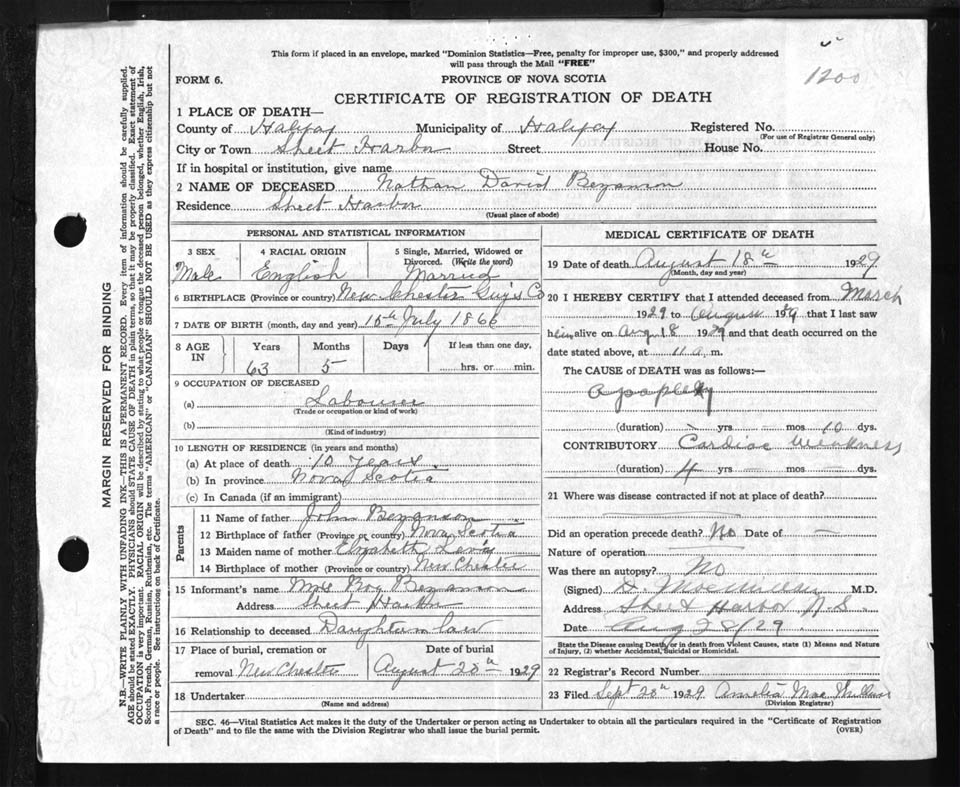 This form if placed in an envelope, marked "Dominion Statistics—Free, penalty for improper use, $300," and properly addressed
will pass through the Mail "FREE"
1200
FORM 6.
PROVINCE OF NOVA SCOTIA
CERTIFICATE OF REGISTRATION OF DEATH
1 PLACE OF DEATH—
County of Halifax Municipality of Halifax Registered No.
(For use of Registrar General only)
City or Town Sheet Harbor Street House No.
If in hospital or institution, give name
2 NAME OF DECEASED Nathan David Bezanson
Residence Sheet Harbor
(Usual place of abode)
PERSONAL AND STATISTICAL INFORMATION
3 SEX 4 RACIAL ORIGIN 5 Single, Married, Widowed or
Divorced. (Write the word)
Male English Married
6 BIRTHPLACE (Province or country) New Chester Guy's Co
7 DATE OF BIRTH (month, day and year) 15th July 1866
8 AGE IN Years Months Days If less than one day,
63 5 hrs. or min.
9 OCCUPATION OF DECEASED
(a) Labourer
(Trade or occupation or kind of work)
(b)
(Kind of industry)
10 LENGTH OF RESIDENCE (in years and months)
(a) At place of death 10 years.
(b) In province Nova Scotia
(c) In Canada (if an immigrant)
Parents
11 Name of father John Bezanson
12 Birthplace of father (Province or country) Nova Scotia
13 Maiden name of mother Elizabeth
14 Birthplace of mother (Province or country) New Chester
15 Informant's name Mrs Roy Bezanson
Address Sheet Harbor
16 Relationship to deceased Daughter in law
17 Place of burial, cremation or Date of burial
removal New Chester August 20th 1929
18 Undertaker
(Name and address)
MEDICAL CERTIFICATE OF DEATH
19 Date of death August 18th 1929
(Month, day and year)
20 I HEREBY CERTIFY that I attended deceased from March
1929 to August 1929 that I last saw
him alive on Aug 18 1929 and that death occurred on
date stated above, at 11 a. m.
The CAUSE of DEATH was as follows:—
apoplexy
(duration) yrs mos 10 dys.
CONTRIBUTORY Cardiac Weakness
(duration) 4 yrs mos dys.
21 Where was disease contracted if not at place of death?
Did an operation precede death? No Date of —
Nature of operation
Was there an autopsy? No
(Signed) D. MacMillan M.D.
Address Sheet Harbor N.S.
Date Aug 28/29
State the Disease causing Death, or in death from Violent Causes, state (1) Means and Nature
of Injury, (2) whether Accidental, Suicidal or Homicidal.
22 Registrar's Record Number
23 Filed Sept 28th 1929 Amelia MacMillan
(Division Registrar)
SEC. 46—Vital Statistics Act makes it the duty of the Undertaker or person acting as Undertaker to obtain all the particulars required in the "Certificate of Registration
of Death" and to file the same with the Division Registrar who shall issue the burial permit.
(OVER)
MARGIN RESERVED FOR BINDING
N.B.—WRITE PLAINLY WITH UNFADING INK—THIS IS A PERMANENT RECORD. Every item of information should be carefully supplied.
AGE should be stated EXACTLY. PHYSICIANS should STATE CAUSE OF DEATH in plain terms, so that it may be properly classified. Exact statement of
OCCUPATION is very important. RACIAL ORIGIN will be described by stating to what people or tongue the deceased person belonged, whether English, Irish,
Scotch, French, German, Russian, Ruthenian, etc. The terms "AMERICAN" or "CANADIAN" SHOULD NOT BE USED as they express citizenship but not
a race or people. See instructions on back of Certificate.